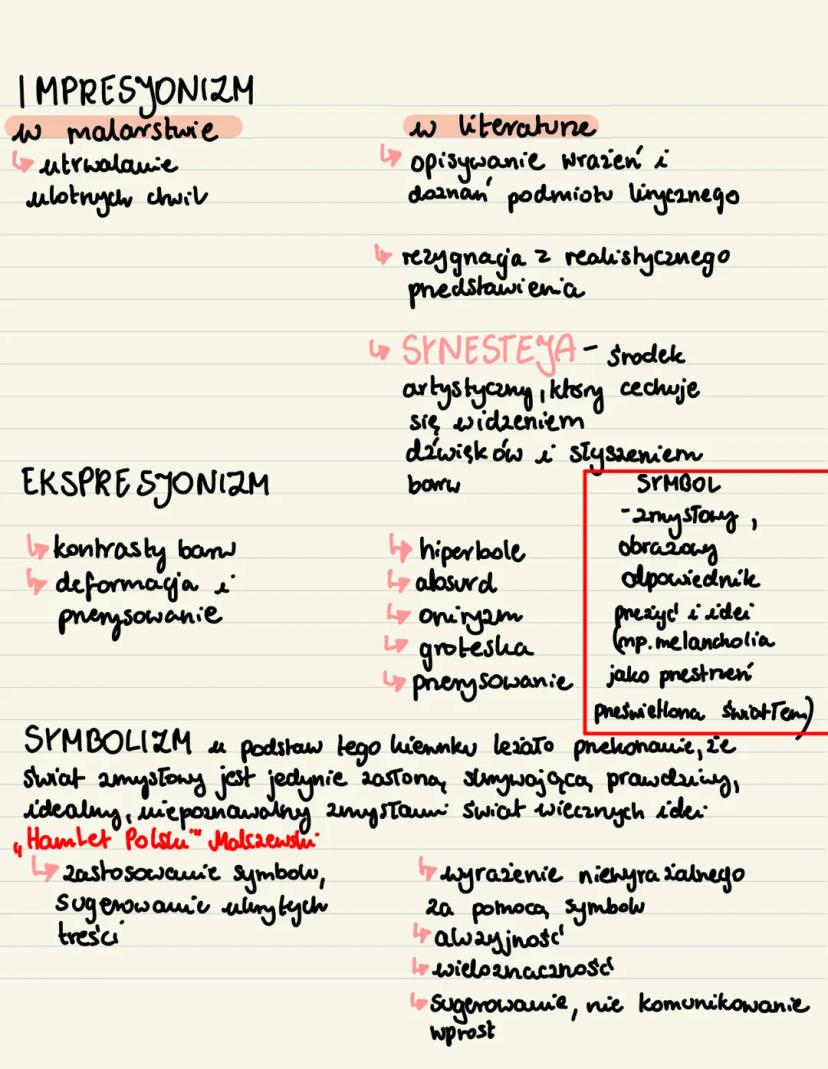 IMPRESYONIZM
w malarstwie
↳ utrwalanie
ulotnych chwil
w literaturze
↳ opisywanie wrażeń i
doznań podmiotu lirycznego
↳ rezygnacja z realistycznego
przedstawienia
↳ SYNESTEJA - środek
artystyczny, który cechuje
się widzeniem
dźwięków i słyszeniem
barw
EKSPRESJONIZM
↳ kontrasty barw
↳ deformacja i
przerysowanie
↳ hiperbole
↳ absurd
↳ oniryzm
↳ groteska
↳ przerysowanie
SYMBOL
- zmysłowy,
obrazowy
odpowiednik
przeżyć i idei
(np. melancholia
jako przestrzeń
prześwietlona światłem)
SYMBOLIZM u podstaw tego kierunku leżało przekonanie, że
świat zmysłowy jest jedynie zasłoną, skrywającą prawdziwy,
idealny, niepoznawalny zmysłami świat wiecznych idei
„Hamlet Polski" Malczewski
↳ zastosowanie symbolu,
sugerowanie ukrytych
treści
↳ wyrażenie niewyrażalnego
za pomocą symbolu
↳ aluzyjność
↳ wieloznaczność
↳ sugerowanie, nie komunikowanie
wprost